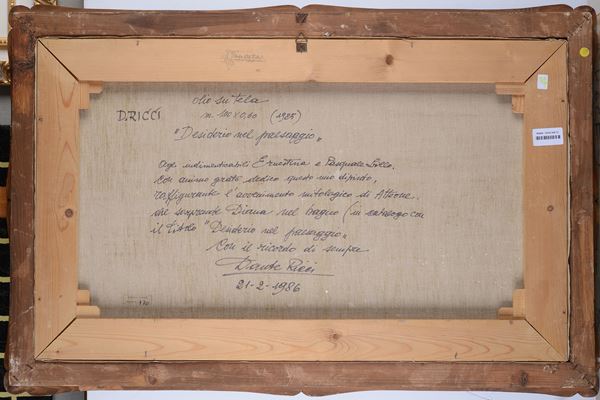 D. RICCI
olio su tela
m. 1,00 x 0,60 (1985)
"Desiderio nel paesaggio"
Agli indimenticabili Ernestina e Pasquale
con animo grato dedico questo mio dipinto,
raffigurante l'avvenimento mitologico di Atteone.
che sorprende Diana nel bagno (in catalogo con
il titolo "Desiderio nel paesaggio"
Con il ricordo di sempre
Dante Ricci
21-2-1986